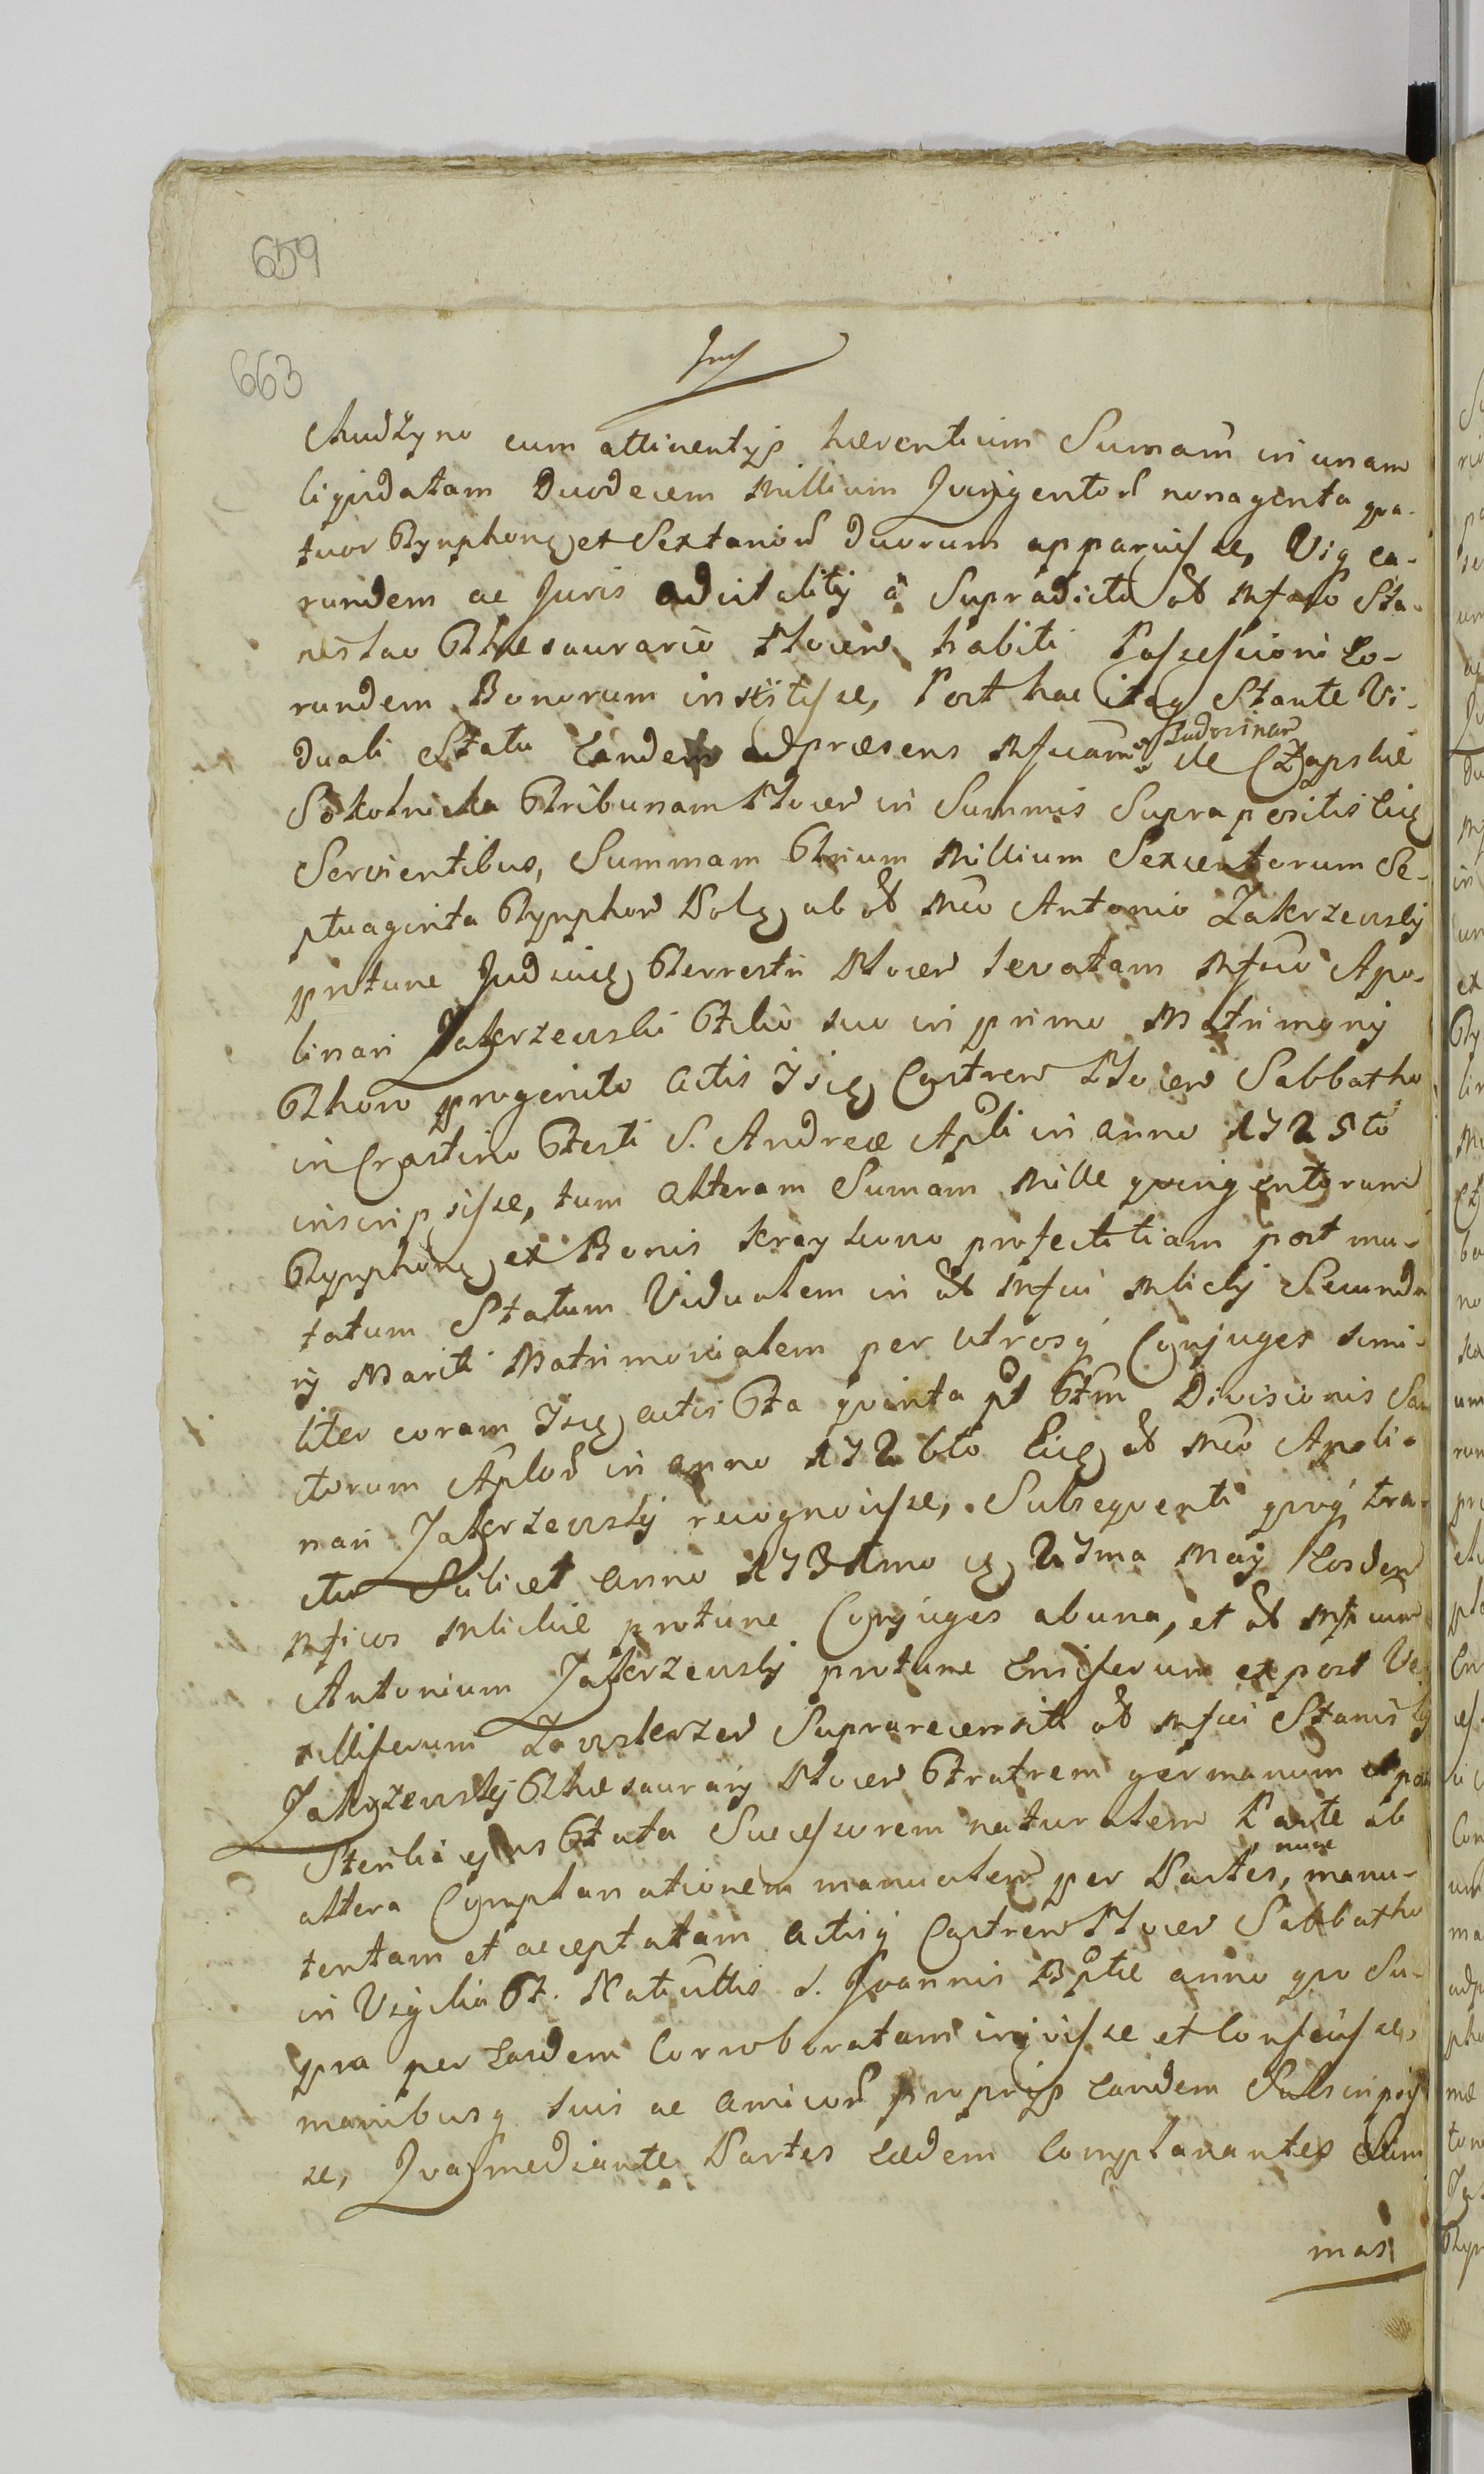 659
663
Chudzyno cum attinentijs hærentium Sumam in unam
liqvidatam Duodecem Millium Qvingentor nonaginta qva-
tuor Tynphonq et Sextanor Duorum apparuisse, Viq ea-
rundem ac Juris advitalitij à Supradicto ol Mfco Sta-
nislao Thesaurario Plocen habiti Possessioni Eo-
rundem Bonorum institisse, Post hac itaq Stante Vi-
duali Statu Eandem adpræsens Mficam Ludovinam de Czapskie
Sokolnicka Tribunam Plocen in Summis Suprapositis Eiq
Servientibus, Summam Trium Millium Sexcentorum Se-
ptuaginta Tynphon Polq ab ol Mco Antonio Zakrzewskij
protunc Judiciq Terrestri Plocen levatam Mfico Apo-
linari Zakrzewski Filio suo in primo Matrimonij
Thoro progenito Actis Isiq Castren Plocen Sabbatho
in Crastino Festi S. Andreæ Apli in anno 1725to
inscripsisse, tum Alteram Sumam Mille qvingentorum
Tynphonq ex Bonis Krzykowo profectitiam post mu-
tatum Statum Vidualem in ol Mfici Mlickij Secunda
rij Mariti Matrimonialem per utrosq Conjuges simi-
liter coram Isiq actis Fa qvinta pt Ftm Divisionis San
ctorum Aplor in anno 1726to Eiq ol Mco Apoli-
nari Zakrzewskij recognovisse, Subseqventi qvoq tra-
ctu Scilicet anno 1731mo q 27ma Maij Eosdem
Mficos Mlickie protunc Conjuges abuna, et ol Mficum
Antonium Zakrzewskij protunc Ensiferum expost Ve
xilliferum Zawskrzen Suprarecensiti ol Mfici Stanisły
Zakrzewskij Thesaurarij Plocen Fratrem germanum et post
Sterilia ejus Fata Successorem naturalem Parte ab
altera Complanationem manualem per Partes, nunc manu-
tentam et acceptatam Actisq Castren Plocen Sabbatho
in Vigilia F. Nativttis S. Joannis Bptæ anno qvo Su-
pra per Easdem Corroboratam inivisse et Confecisse,
manibusq suis ac Amicor proprijs Eandem Subscripsis
se, Qva mediante Partes Eædem Complanantes Sum
mas